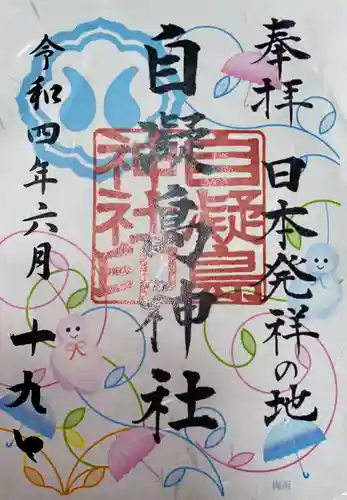 奉拝 日本発祥の地
自凝島神社
自凝島
神社印
令和四年六月十九日
梅雨